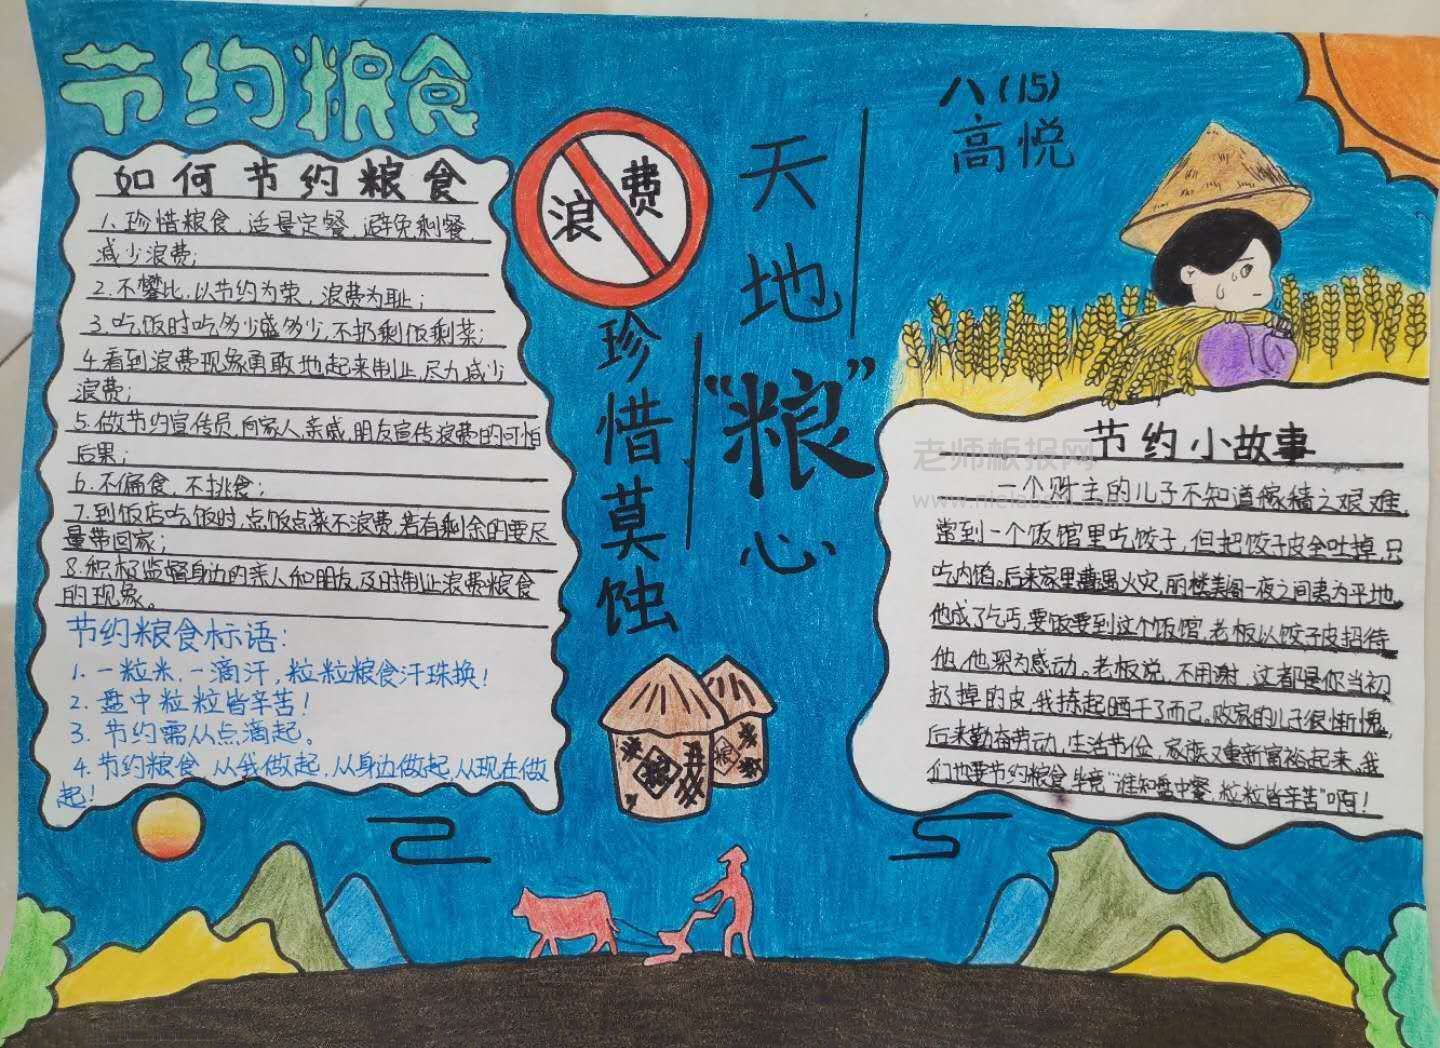 节约粮食
如何节约粮食
1、珍惜粮食,适量定餐,避免剩餐,
减少浪费;
2.不攀比,以节约为荣,浪费为耻;
3.吃饭时吃多少盛多少,不扔剩饭剩菜;
4.看到浪费现象勇敢地起来制止,尽力减少
浪费;
5.做节约宣传员,向家人、亲戚,朋友宣传浪费的可怕
后果;
6.不偏食,不挑食;
7.到饭店吃饭时,点饭点菜不浪费,若有剩余的要尽
量带回家;
8.积极监督身边的亲人和朋友,及时制止浪费粮食
的现象。
节约粮食标语:
1.一粒米,一滴汗,粒粒粮食汗珠换!
2.盘中粒粒皆辛苦!
3.节约需从点滴起。
4.节约粮食,从我做起,从身边做起,从现在做
起!
浪费
天地“粮”心
珍惜莫蚀
粮
粮
八(15)
高悦
节约小故事
老师板报网
一个财主的儿子不知道稼穑之艰难,
常到一个饭馆里吃饺子,但把饺子皮全吐掉,只
吃内馅。后来家里遭遇火灾,丽楼美阁一夜之间袭为平地,
他成了乞丐,要饭要到这个饭馆,老板以饺子皮招待
他,他深为感动。老板说,不用谢,这都是你当初
扔掉的皮,我拣起晒干了而已。败家的儿子很惭愧,
后来勤奋劳动,生活节俭,家族又重新富裕起来。我
们也要节约粮食,毕竟“谁知盘中餐,粒粒皆辛苦”啊!